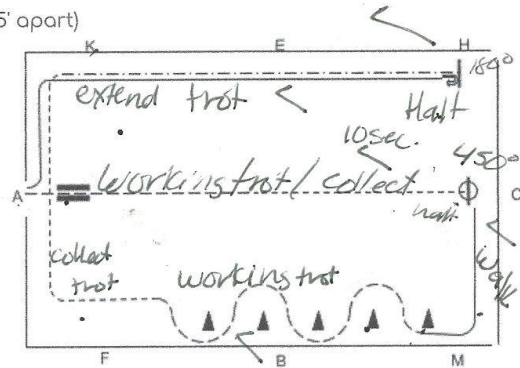 5' apart)
K E H
180°
extend trot
Halt
10sec.
450°
Working trot / collect
A C
halt
collect
trot
working trot
Walk
F B M